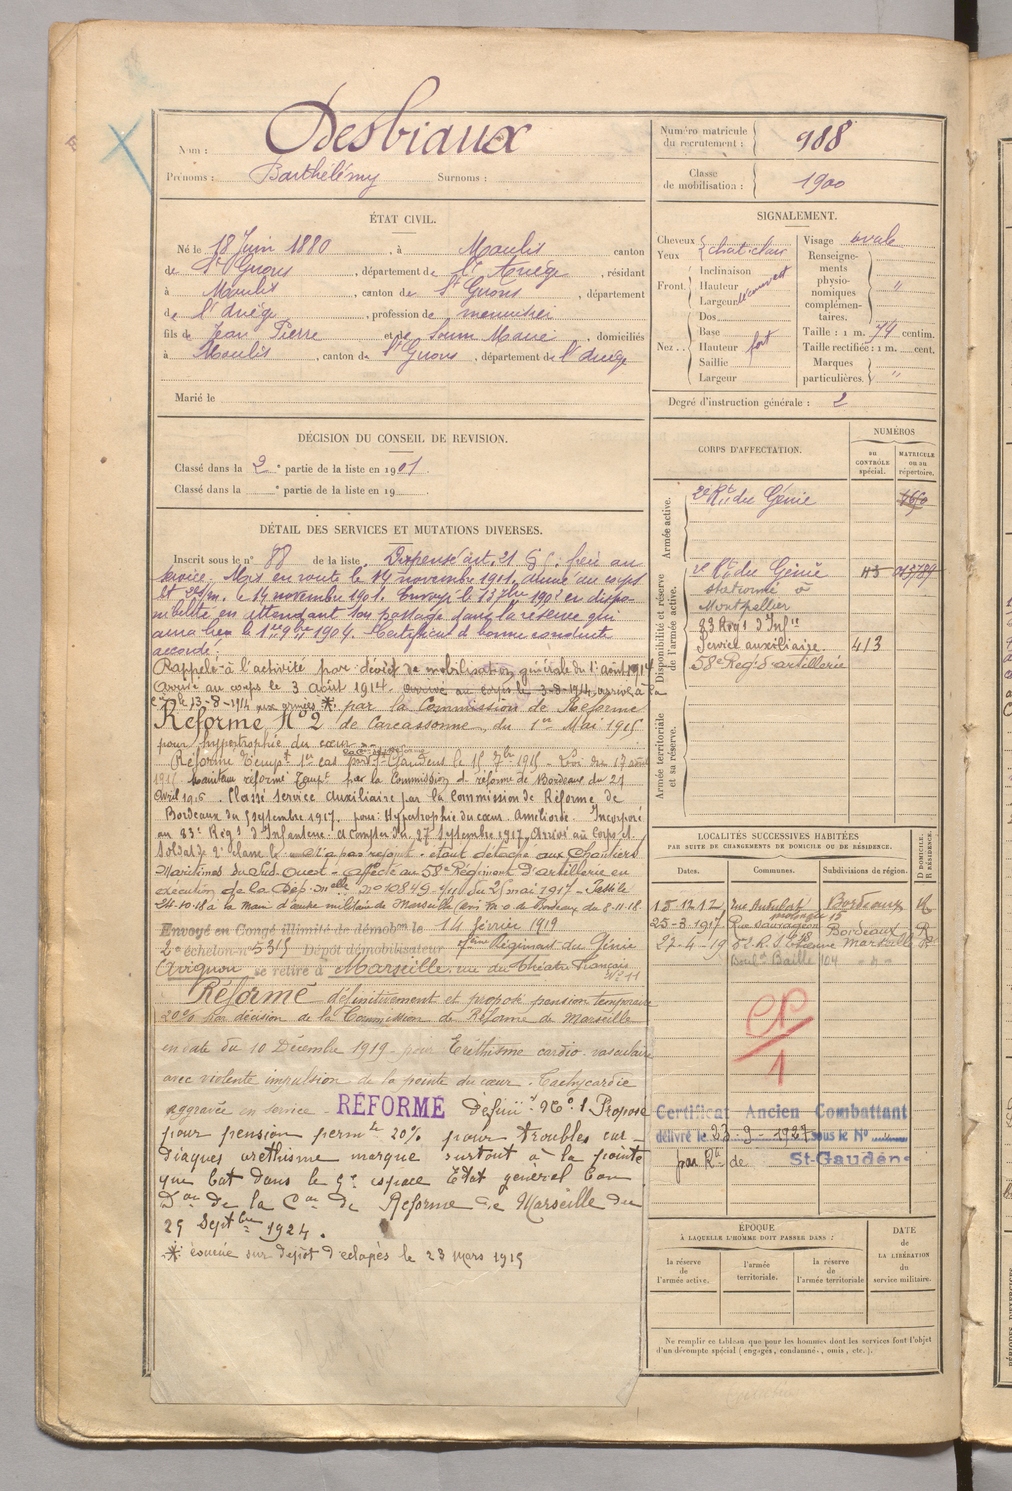 Nom : Desbiaux
Prénoms : Barthélémy Surnoms :
Numéro matricule du recrutement : 988
Classe de mobilisation : 1900
ÉTAT CIVIL.
Né le 18 Juin 1880, à Moulis canton
de St Girons, département de l'Ariège, résidant
à Moulis, canton de St Girons, département
de l'Ariège, profession de menuisier
fils de Jean Pierre et de Soum Marie, domiciliés
à Moulis, canton de St Girons, département de l'Ariège
Marié le
SIGNALEMENT.
Cheveux
Yeux } chat. clair
Front. { Inclinaison
Hauteur
Largeur découvert
Nez.. { Dos
Base
Hauteur fort
Saillie
Largeur
Visage ovale
Renseignements physionomiques complémentaires. "
Taille : 1 m. 74 centim.
Taille rectifiée : 1 m. cent.
Marques particulières. "
Degré d'instruction générale : 2
DÉCISION DU CONSEIL DE REVISION.
Classé dans la 2e partie de la liste en 1901.
Classé dans la e partie de la liste en 19
DÉTAIL DES SERVICES ET MUTATIONS DIVERSES.
Inscrit sous le n° 88 de la liste. Dispensé art. 21 frère au
service. Mis en route le 14 novembre 1901, arrivé au corps
et le 14 novembre 1901. Envoyé le en dispo-
nibilité en attendant son passage dans la réserve qui
aura lieu le 1er 9bre 1904. Certificat de bonne conduite
accordé.
Rappelé à l'activité par décret de mobilisation générale du 1er août 1914
Arrivé au corps le 3 août 1914. arrivé au corps le 3-8-1914,
le 13-8-1914 aux armées * par la Commission de Réforme
Réformé N° 2 de Carcassonne, du 1er Mai 1915
pour hypertrophie du cœur
Réformé Tempt 1er cas St Gaudens le 15 7bre 1915
Maintenu réformé Tempt par la Commission de réforme de Bordeaux du 27
Avril 1916. Classé service auxiliaire par la Commission de Réforme de
Bordeaux du 5 septembre 1917. pour: Hypertrophie du cœur. Améliorée. Incorporé
au 83e Régt d'Infanterie. à compter du 27 Septembre 1917, Arrivé au Corps et
soldat de 2e classe le n'a pas rejoint. étant détaché aux Chantiers
Maritimes du Sud-Ouest - affecté au 58e Régiment d'artillerie en
exécution de la Dép. n° 10849 du 25 mai 1917 - Passé le
24-10-18 à la Main d'œuvre militaire de Marseille de Bordeaux du 8.11.18.
Envoyé en Congé illimité de démobon le 14 février 1919
2e échelon n° 5315 Dépôt démobilisateur 7ème Régiment du Génie
Avignon se retire à Marseille, rue du Théâtre Français
N° 11
Réformé définitivement et proposé pension temporaire
20% par décision de la Commission de Réforme de Marseille
en date du 10 Décembre 1919 - pour Eréthisme cardio-vasculaire
avec violente impulsion de la pointe du cœur. Tachycardie
aggravée en service - RÉFORMÉ Définitt N° 1 Proposé
pour pension permte 20% pour troubles car-
diaques eréthisme marqué surtout à la pointe
que bat dans le 5e espace État général bon
Don de la Con de Réforme de Marseille du
25 Septbre 1924.
* évacué sur dépôt d'éclopés le 23 mars 1915
CORPS D'AFFECTATION.
NUMÉROS
au CONTRÔLE spécial.
MATRICULE ou au répertoire.
Armée active.
2e Rt du Génie
Disponibilité et réserve de l'armée active.
2e Rt du Génie
stationné à
Montpellier
83 Régt d'Infie
Service auxiliaire. 413
58e Régt d'artillerie
Armée territoriale et sa réserve.
LOCALITÉS SUCCESSIVES HABITÉES
PAR SUITE DE CHANGEMENTS DE DOMICILE OU DE RÉSIDENCE.
Dates. Communes. Subdivisions de région. D DOMICILE. R RÉSIDENCE.
15-12-12 Bordeaux R
25-3-1917 Rue Sauvageon prolongée 15 Bordeaux R
22-4-19 Marseille
Bould Baille 104 " "
CP
1
Certificat Ancien Combattant
délivré le 23-9-1927 sous le N°
par Rt de St-Gaudens
ÉPOQUE
À LAQUELLE L'HOMME DOIT PASSER DANS :
la réserve de l'armée active.
l'armée territoriale.
la réserve de l'armée territoriale
DATE de LA LIBÉRATION du service militaire.
Ne remplir ce tableau que pour les hommes dont les services font l'objet
d'un décompte spécial (engagés, condamnés, omis, etc.).